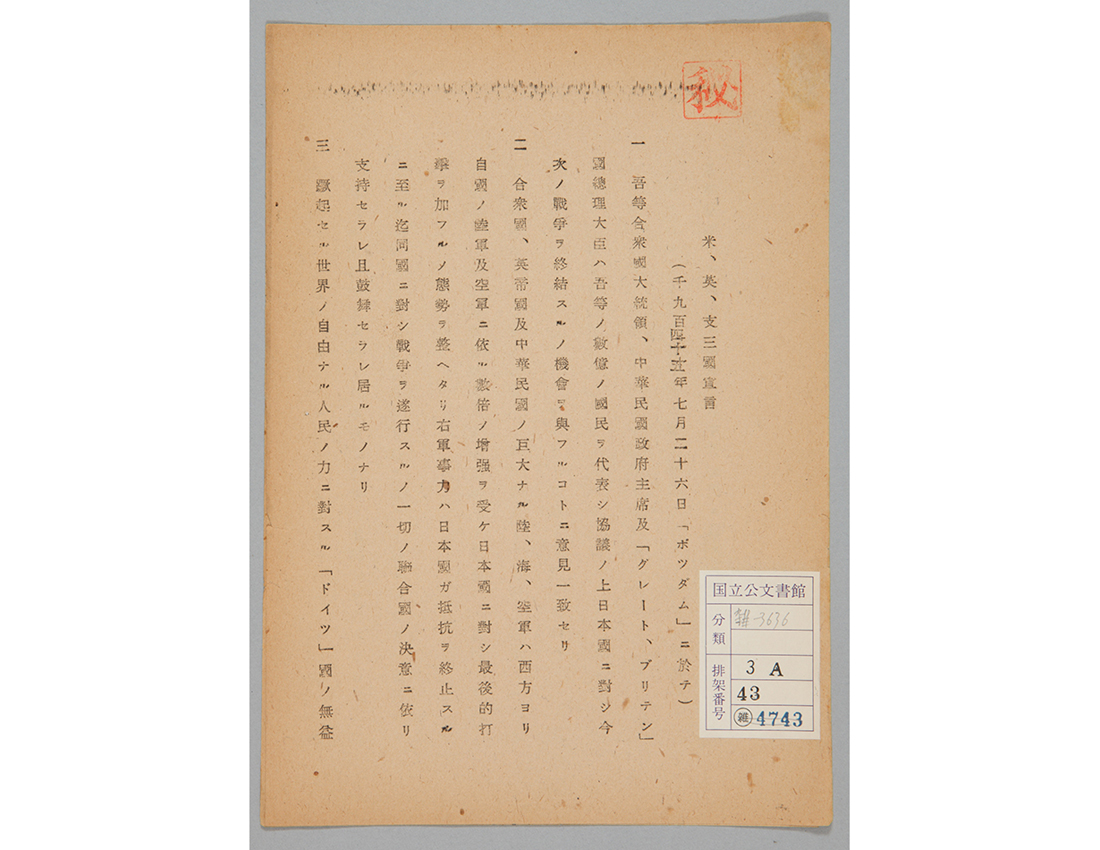 秘
米、英、支三國宣言
(千九百四十五年七月二十六日「ポツダム」ニ於テ)
一 吾等合衆國大統領、中華民國政府主席及「グレート、ブリテン」
國總理大臣ハ吾等ノ數億ノ國民ヲ代表シ協議ノ上日本國ニ對シ今
次ノ戰爭ヲ終結スルノ機會ヲ與フルコトニ意見一致セリ
二 合衆國、英帝國及中華民國ノ巨大ナル陸、海、空軍ハ西方ヨリ
自國ノ陸軍及空軍ニ依ル數倍ノ增强ヲ受ケ日本國ニ對シ最後的打
擊ヲ加フルノ態勢ヲ整ヘタリ右軍事力ハ日本國ガ抵抗ヲ終止スル
ニ至ル迄同國ニ對シ戰爭ヲ遂行スルノ一切ノ聯合國ノ決意ニ依リ
支持セラレ且鼓舞セラレ居ルモノナリ
三 蹶起セル世界ノ自由ナル人民ノ力ニ對スル「ドイツ」國ノ無益
国立公文書館
分類
雑-3636
排架番号
3 A
43
雑 4743